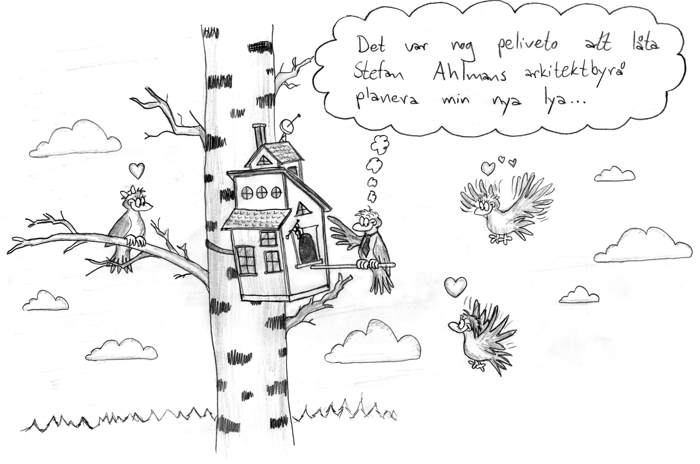 Det var nog peliveto att låta
Stefan Ahlmans arkitektbyrå
planera min nya lya...